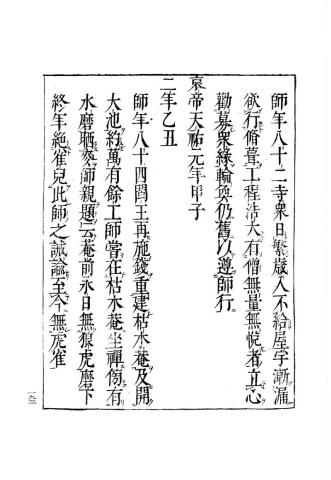 師年八十二寺衆日繁歳入不給屋宇漸漏
欲行脩葺工程浩大有僧無量無悅者立心
勸募衆緣輪奐仍舊以遵師行
哀帝天祐元年甲子
二年乙丑
師年八十四閩王再施錢重建枯木菴及開
大池約萬有餘工師嘗在枯木菴坐禪傍有
水磨晒麥師親題云菴前永日無狼虎磨下
終年絕雀兒此師之誡論至今無虎雀
一九三